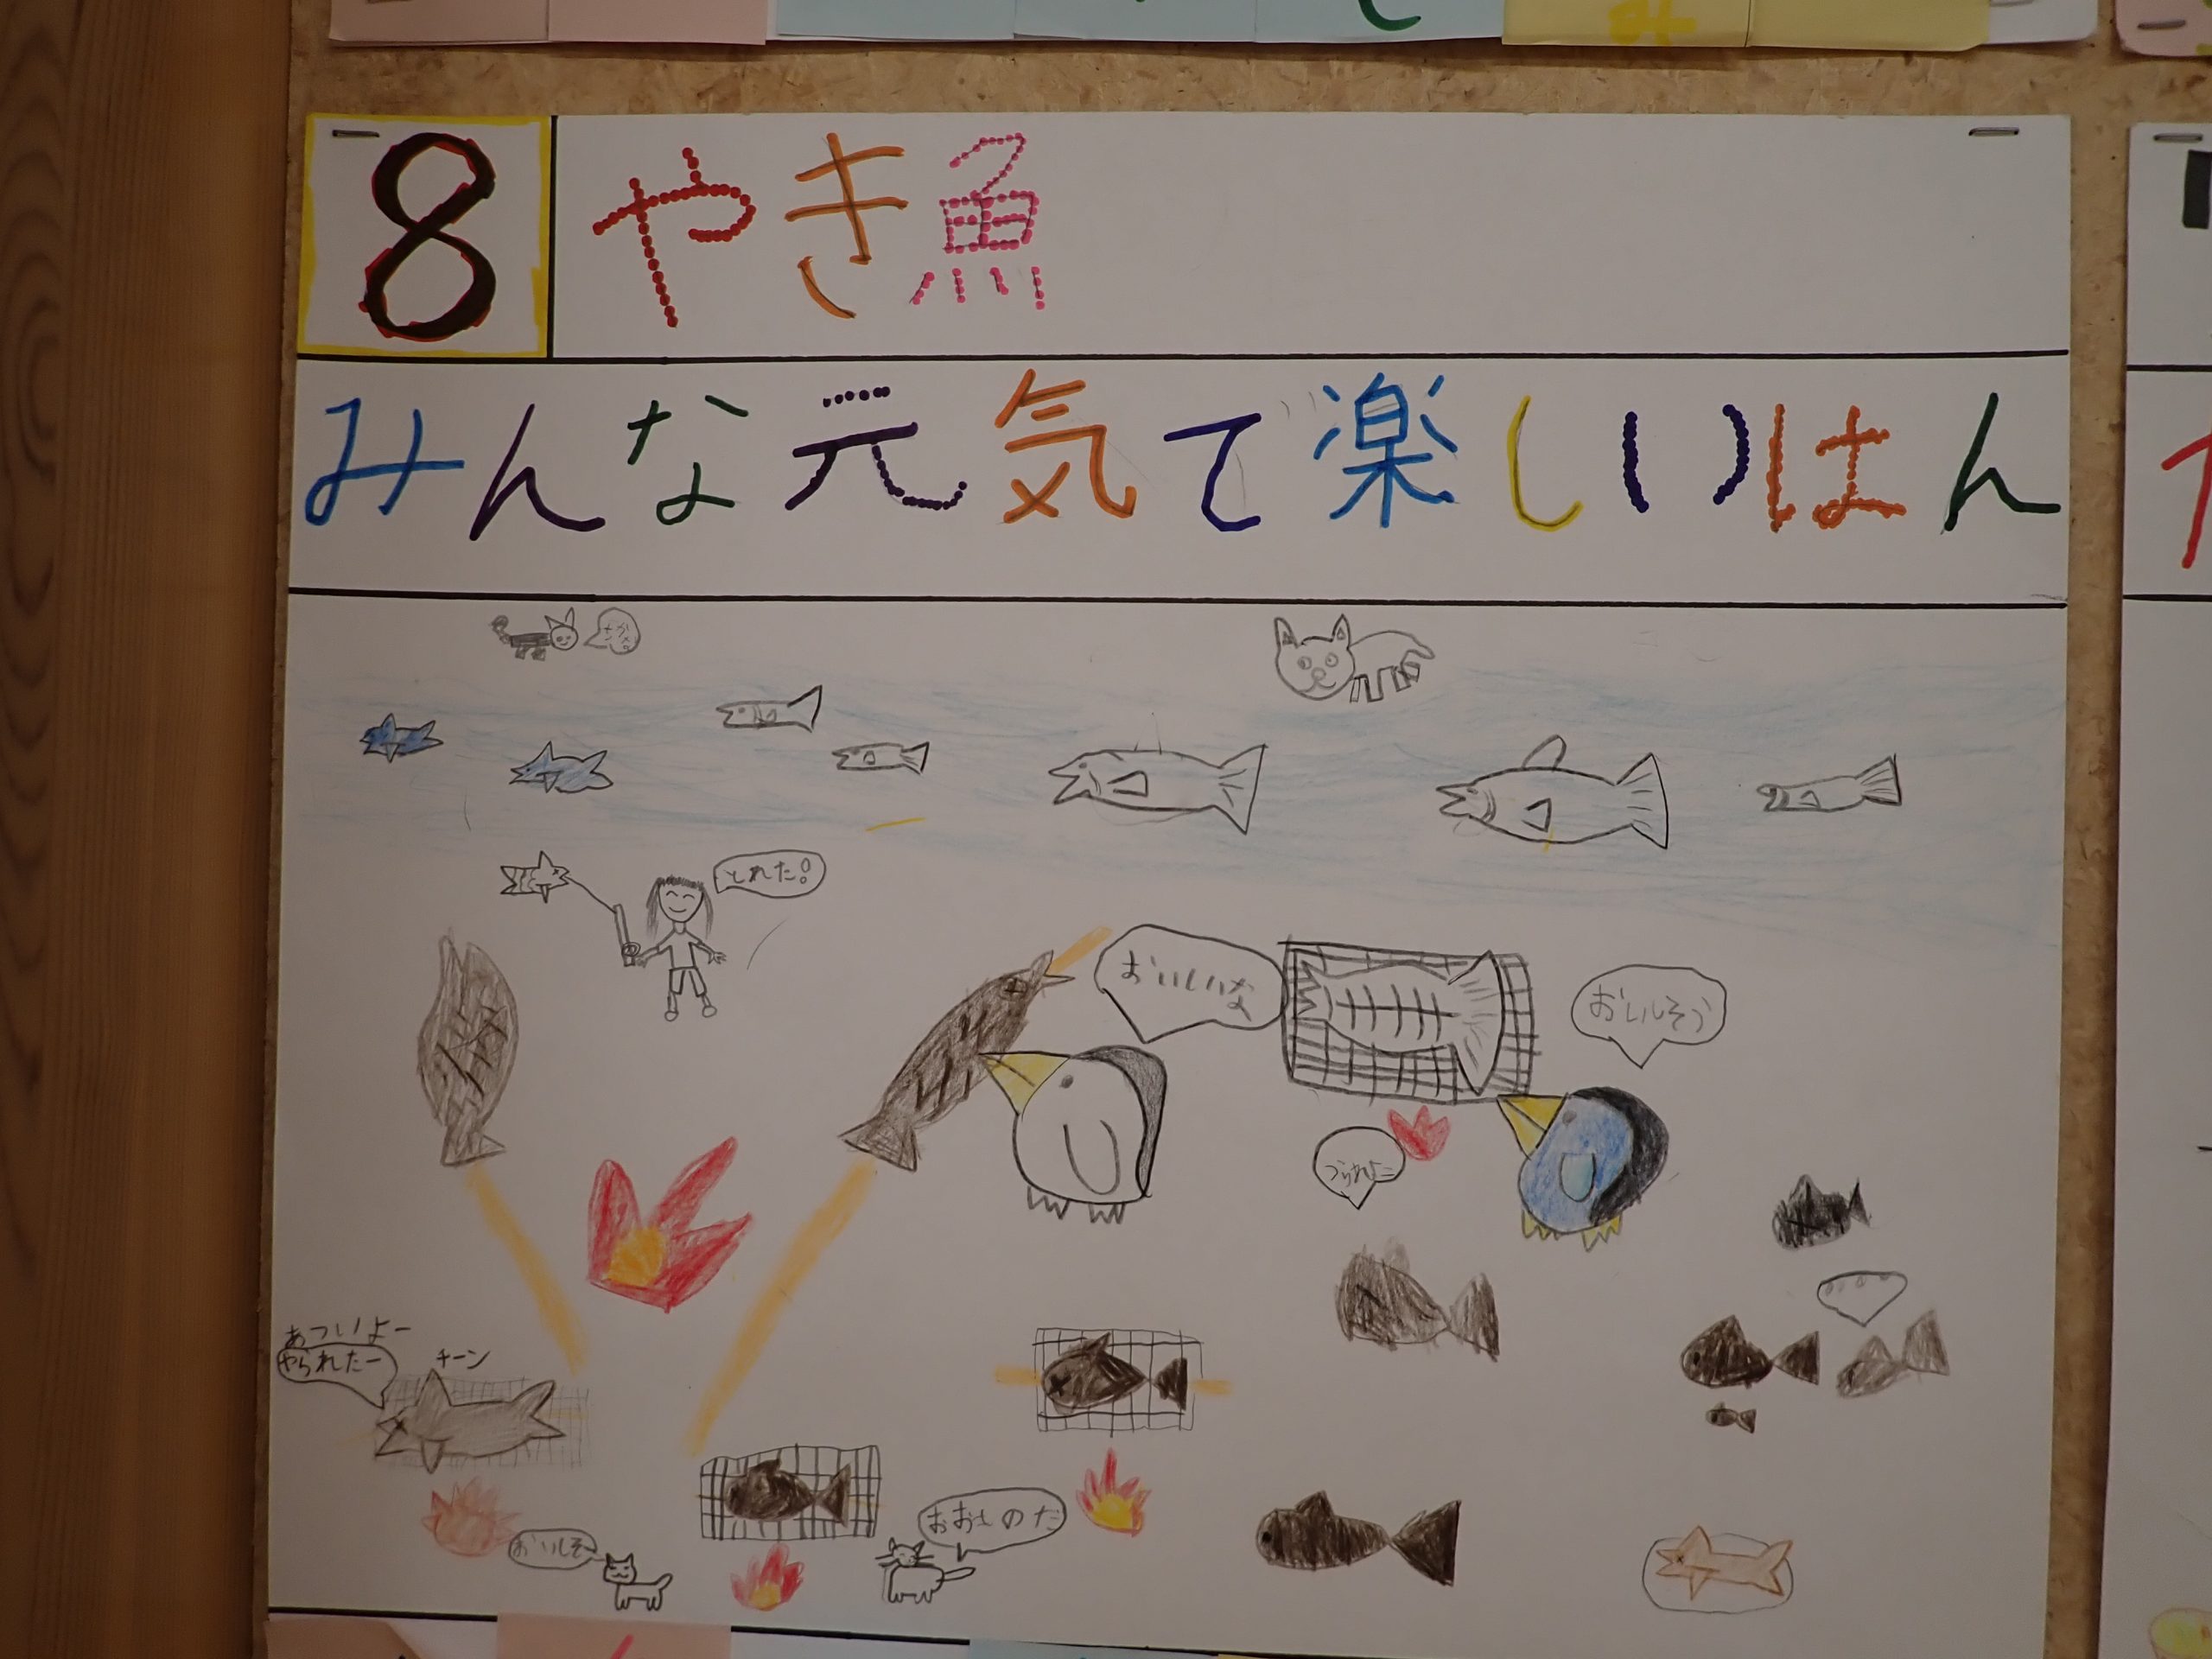 8 やき魚
みんな元気で楽しいはん
さかな
とれた!
おいしいな
おいしそう
つられぴこ
あついよー
やられたー
チーン
おいしそ
おおものだ